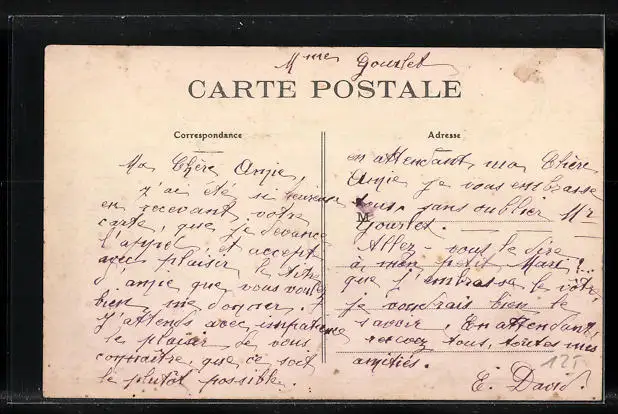 Mme Gourlet
CARTE POSTALE
Correspondance
Adresse
Ma Chère Amie,
J'ai été si heureuse
en recevant votre
carte, que je devance
l'appel et accepte
avec plaisir le titre
d'amie que vous voulez
bien me donner.
J'attends avec impatience
le plaisir de vous
connaitre, que ce soit
le plutôt possible.
en attendant, ma Chère
Amie je vous embrasse
tous, sans oublier Mr
M
Gourlet.
Allez-vous le dire
à mon petit Mari!..
que j'embrasse le votre,
je voudrais bien le
savoir. En attendant,
recevez tous, toutes mes
amitiés.
E. David
125